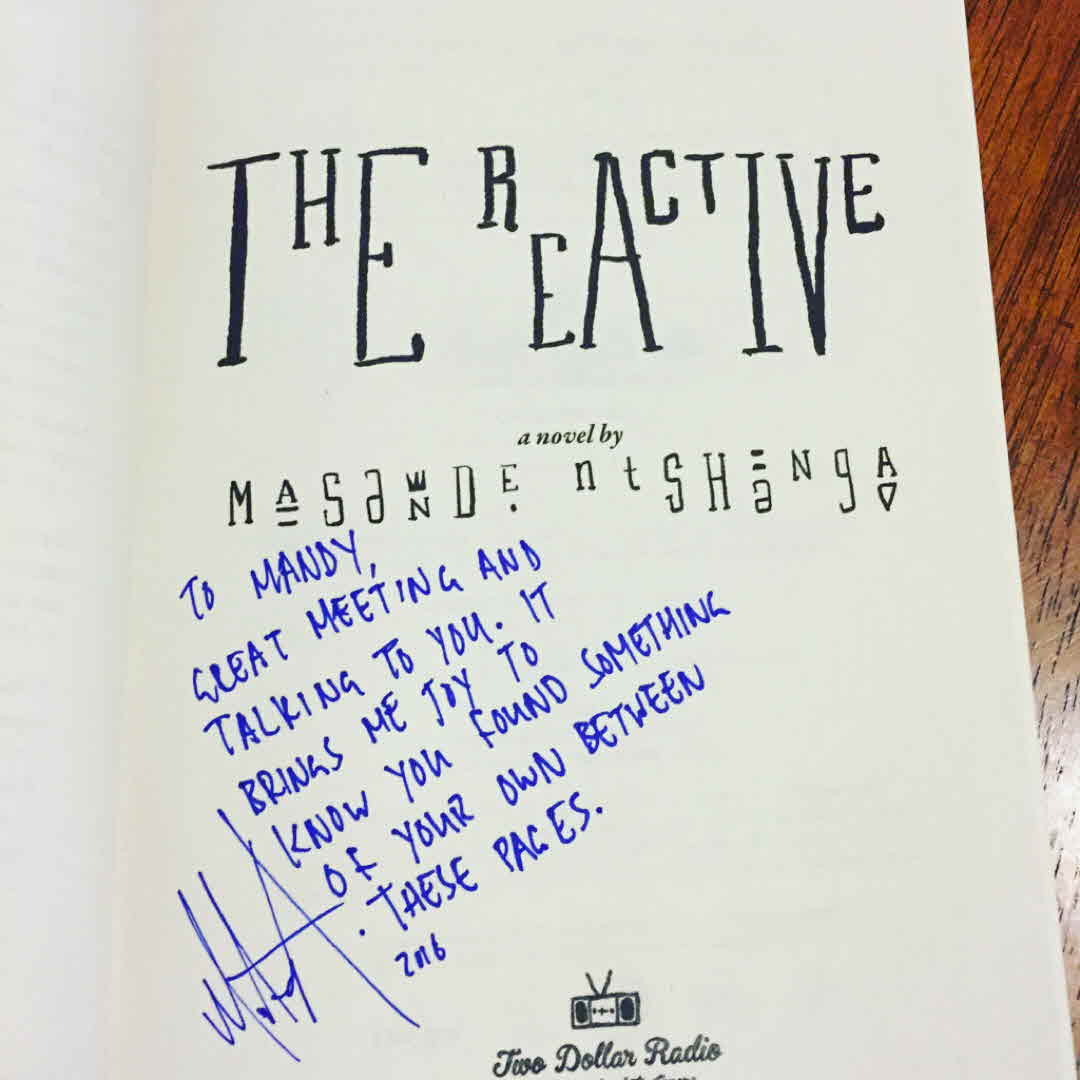 THE REACTIVE
a novel by
MASANDE ntSHaNgA
TO MANDY,
GREAT MEETING AND
TALKING TO YOU. IT
BRINGS ME JOY TO
KNOW YOU FOUND SOMETHING
OF YOUR OWN BETWEEN
THESE PAGES.
2016
Two Dollar Radio